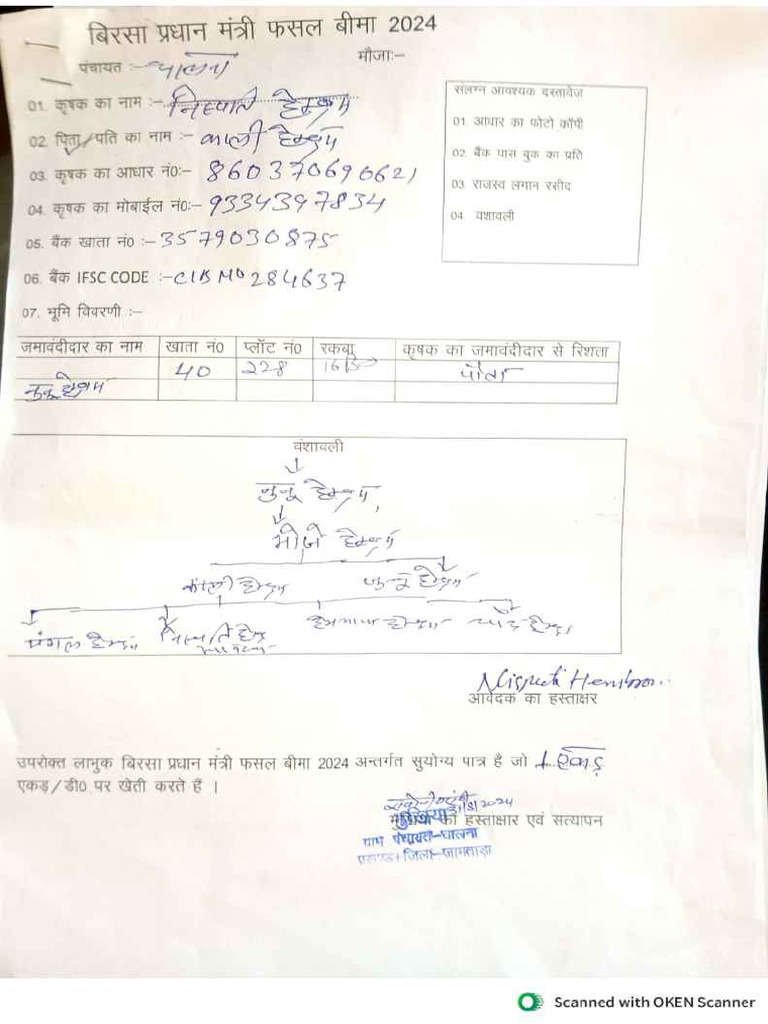 बिरसा प्रधान मंत्री फसल बीमा 2024
पंचायत :- पालना मौजा:-
01. कृषक का नाम :- निस्पति हेम्ब्रम
02. पिता/पति का नाम :- काली हेम्ब्रम
03. कृषक का आधार नं0:- 860370690621
04. कृषक का मोबाईल नं0:- 9334397834
05. बैंक खाता नं0 :- 3579030875
06. बैंक IFSC CODE :- CIBM0284637
07. भूमि विवरणी :-
संलग्न आवश्यक दस्तावेज
01. आधार का फोटो कॉपी
02. बैंक पास बुक का प्रति
03 राजस्व लगान रसीद
04. वंशावली
जमावंदीदार का नाम खाता नं0 प्लॉट नं0 रकबा कृषक का जमावंदीदार से रिशता
नुनू हेम्ब्रम 40 228 पौता
वंशावली
नुनू हेम्ब्रम
भीजे हेम्ब्रम
काली हेम्ब्रम हेम्ब्रम
मंगल हेम्ब्रम निस्पति हेम्ब्रम हेम्ब्रम चाँद हेम्ब्रम
Nispati Hembrom
आवेदक का हस्ताक्षर
उपरोक्त लाभुक बिरसा प्रधान मंत्री फसल बीमा 2024 अन्तर्गत सुयोग्य पात्र है जो 1 एकड़
एकड़/डी0 पर खेती करते हैं ।
मुखिया का हस्ताक्षार एवं सत्यापन
मुखिया
ग्राम पंचायत-पालना
प्रखण्ड+जिला-जामताड़ा
Scanned with OKEN Scanner